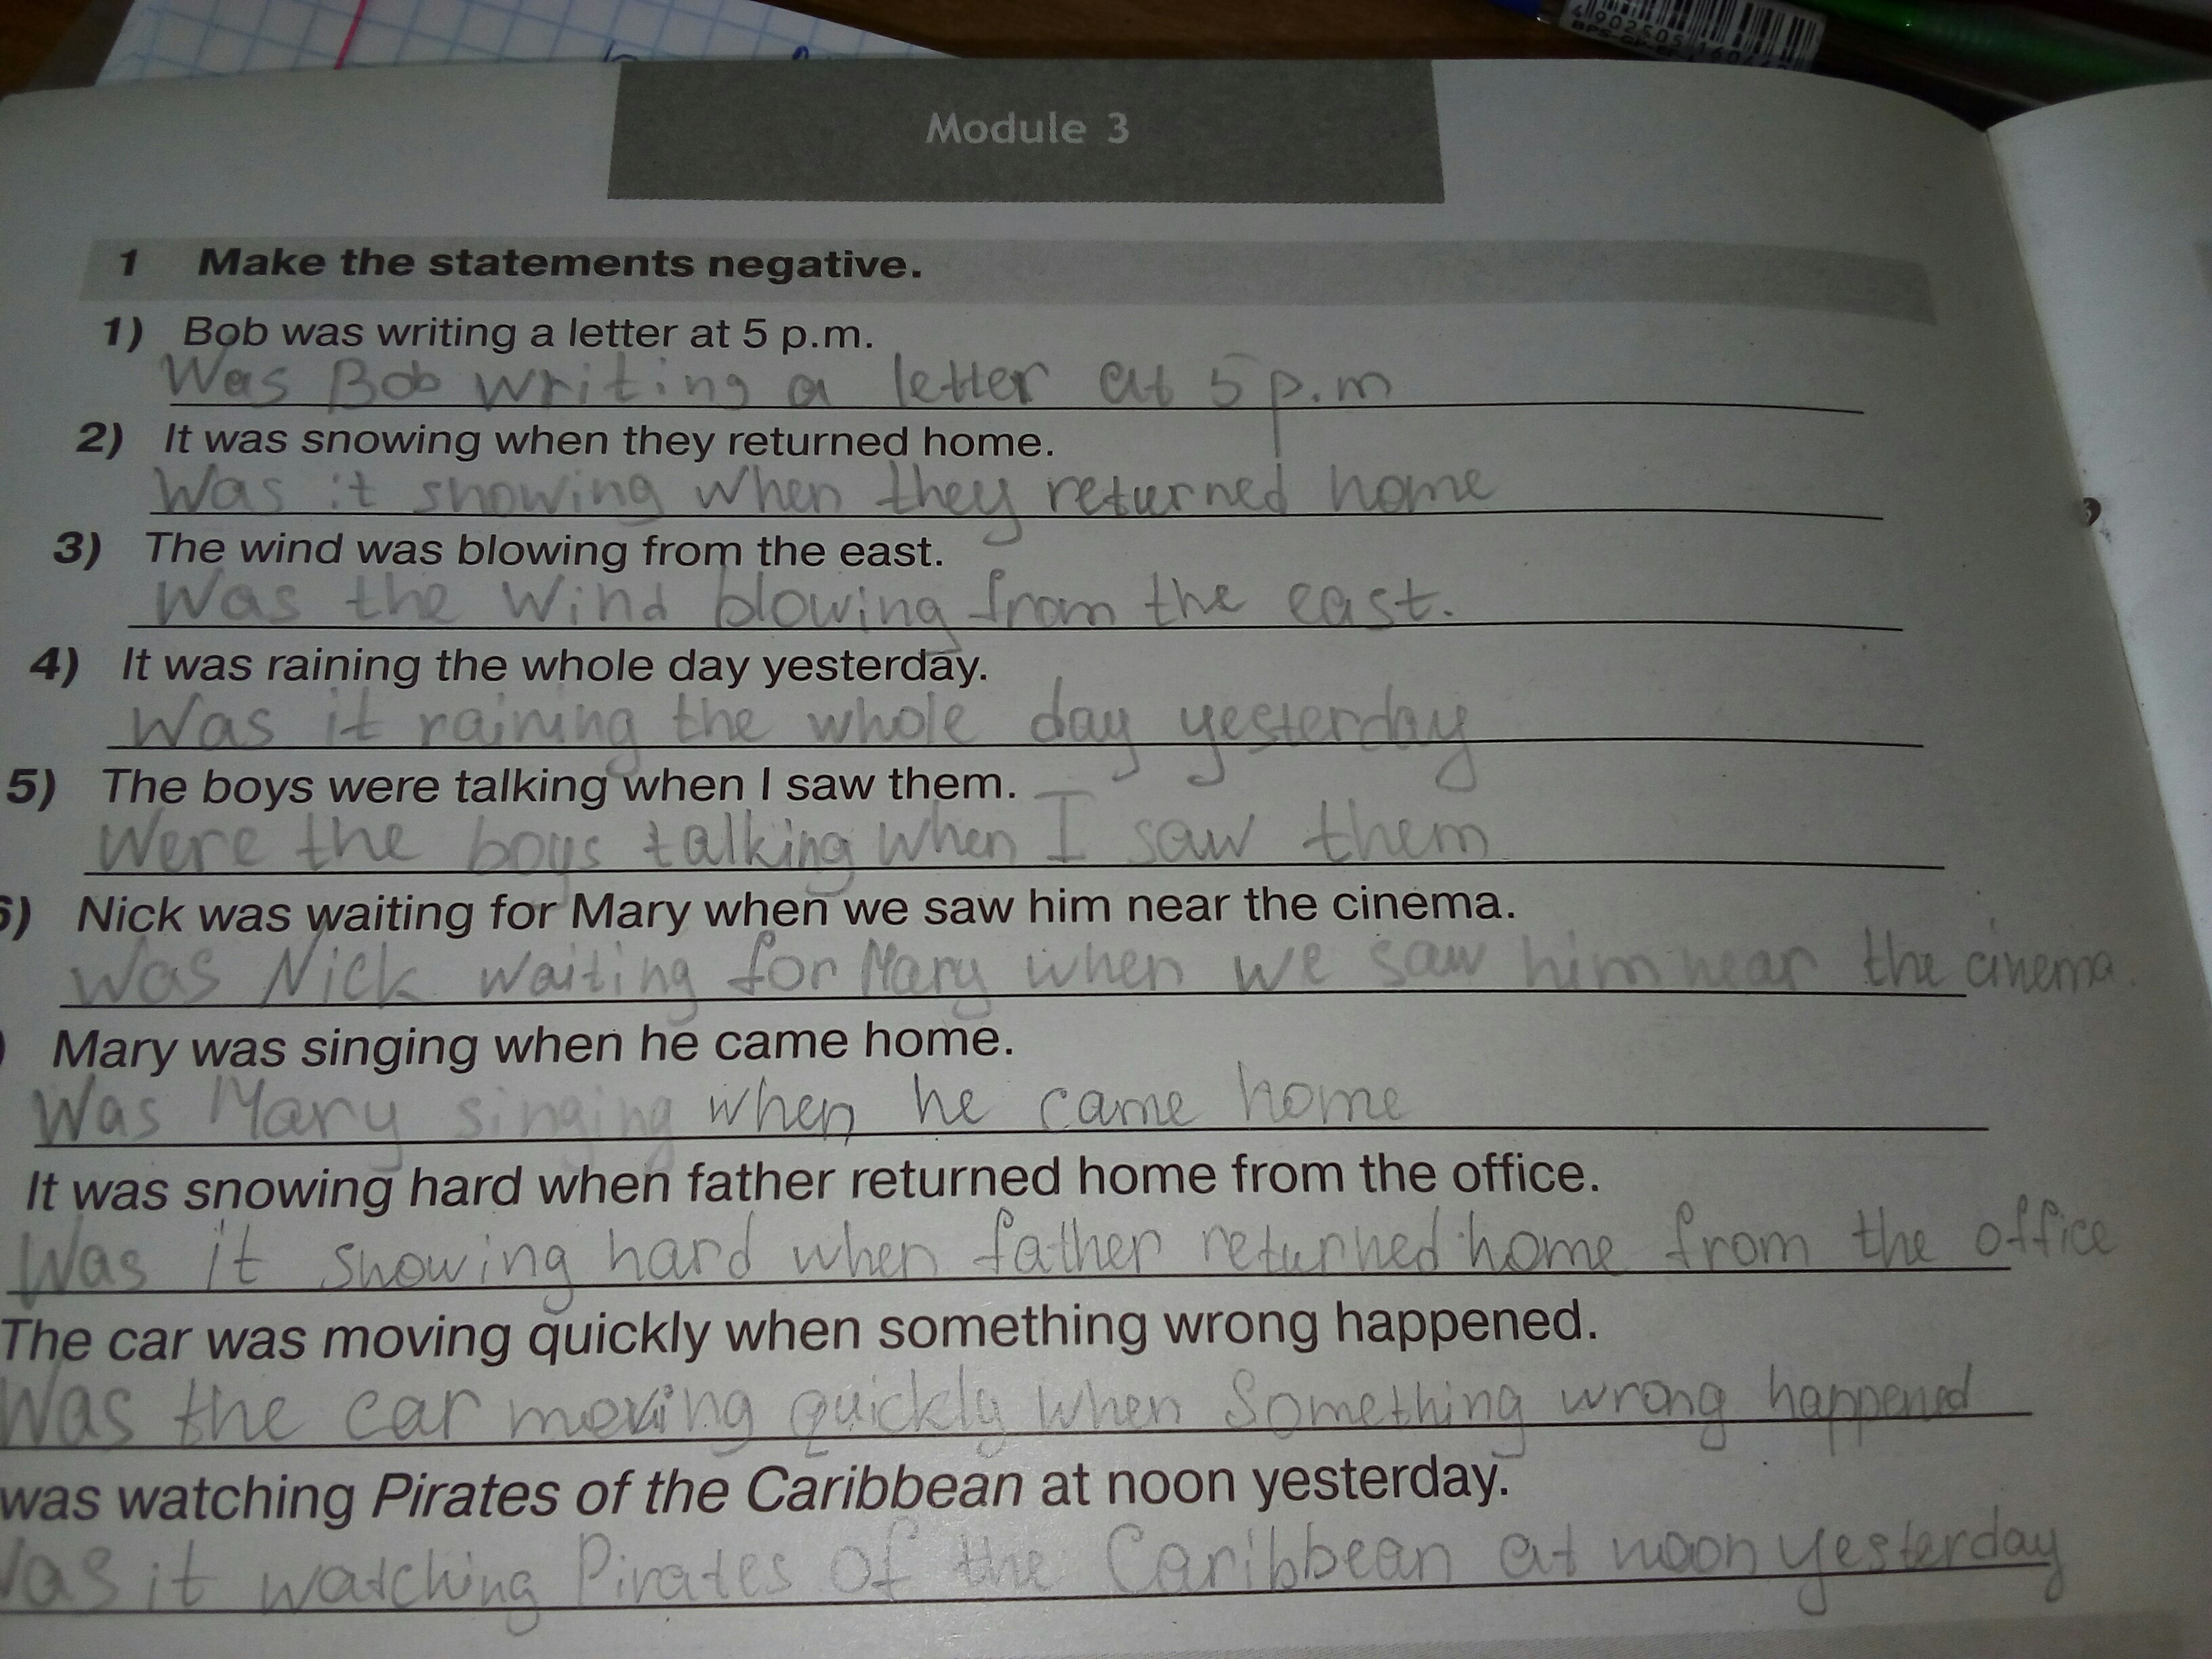 4902505160
Module 3
1 Make the statements negative.
1) Bob was writing a letter at 5 p.m.
Was Bob writing a letter at 5 p.m
2) It was snowing when they returned home.
Was it snowing when they returned home
3) The wind was blowing from the east.
Was the wind blowing from the east.
4) It was raining the whole day yesterday.
Was it raining the whole day yesterday
5) The boys were talking when I saw them.
Were the boys talking when I saw them
6) Nick was waiting for Mary when we saw him near the cinema.
Was Nick waiting for Mary when we saw him near the cinema.
) Mary was singing when he came home.
Was Mary singing when he came home
It was snowing hard when father returned home from the office.
Was it snowing hard when father returned home from the office
The car was moving quickly when something wrong happened.
Was the car moving quickly when Something wrong happened
was watching Pirates of the Caribbean at noon yesterday.
Was it watching Pirates of the Caribbean at noon yesterday